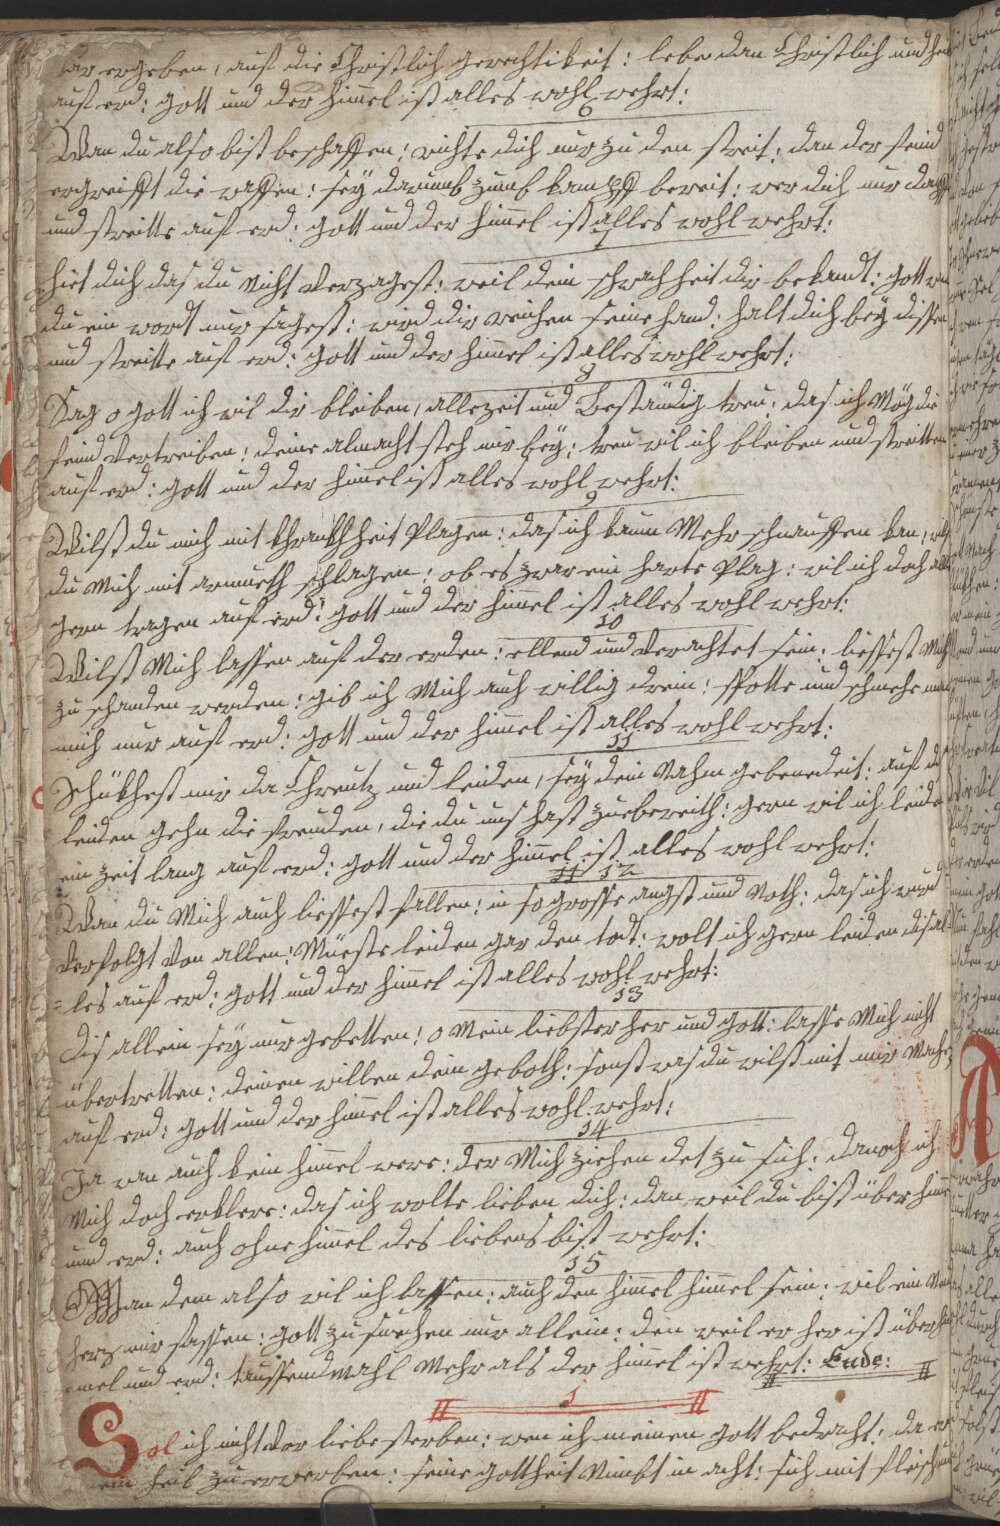 dar ergeben, auf die Christlich gerechtikeit: lebe dan Christlich und
auf erd: gott und der himel ist alles wohl wehrt:
6
Wan du also bist beschaffen: richte dich nur zu den streit: dan der feind
ergreifft die waffen: sey darumb zumb kampff bereit: wer dich nur dapfer
und streitte auf erd: gott und der himel ist alles wohl wehrt:
7
hiet dich das du nicht verzagest: weil dein schwachheit dir bekandt: gott
du ein wordt nur sagest: wird dir reichen seine hand: halt dich bey dissen
und streitte auf erd: gott und der himel ist alles wohl wehrt:
8
Sag o gott ich wil dir bleiben, allezeit und Beständig treu: das ich Mög die
feind vertreiben: deine almacht steh mir bey: treu wil ich bleiben und streitten
auf erd: gott und der himel ist alles wohl wehrt:
9
Wilst du mich mit khrankhheit Plagen: das ich kaum Mehr schnauffen kan,
du Mich mit armueth schlagen: ob es zwar ein harte Plag: wil ich doch alles
gern tragen auf erd: gott und der himel ist alles wohl wehrt:
10
Wilst Mich lassen auf der erden: ellend und verachtet sein: liessest Mich
zu schanden werden: gib ich Mich auch willig drein: spotte und schmehe man
mich nur auf erd: gott und der himel ist alles wohl wehrt:
11
Schükhest mir da Chreutz und leiden, sey dein Nahm gebenedeit: auf das
leiden gehn die freuden, die du uns hast zuebereith: gern wil ich leiden
ein zeit lang auf erd: gott und der himel ist alles wohl wehrt:
11 12
Wan du Mich auch liessest fallen: in so grosse angst und Noth: das ich wurd
verfolgt von allen: Müeste leiden gar den tod: wolt ich gern leiden dis al=
=les auf erd: gott und der himel ist alles wohl wehrt:
13
dis allein sey nur gebetten: o Mein liebster her und gott: lasse Mich nicht
übertretten: deinen willen dein geboth: sonst was du wilst mit mir Mache
auf erd: gott und der himel ist alles wohl wehrt:
14
Ja wan auch kein himel were: der Mich ziehen det zu sich: danoch ich
Mich doch erklere: das ich wolte lieben dich: dan weil du bist über himel
und erd: auch ohne himel des liebens bist wehrt:
15
Wan dem also wil ich lassen: auch den himel himel sein: wil ein
herz mir fassen: gott zu suechen nur allein: den weil er her ist über hi
mel und erd: taussendmahl Mehr als der himel ist wehrt: Ende:
1
Sol ich nicht vor liebe sterben: wen ich meinen gott bedracht: da er
mein heil zu erwerben: seine gottheit Nimbt in acht: sich mit fleisch